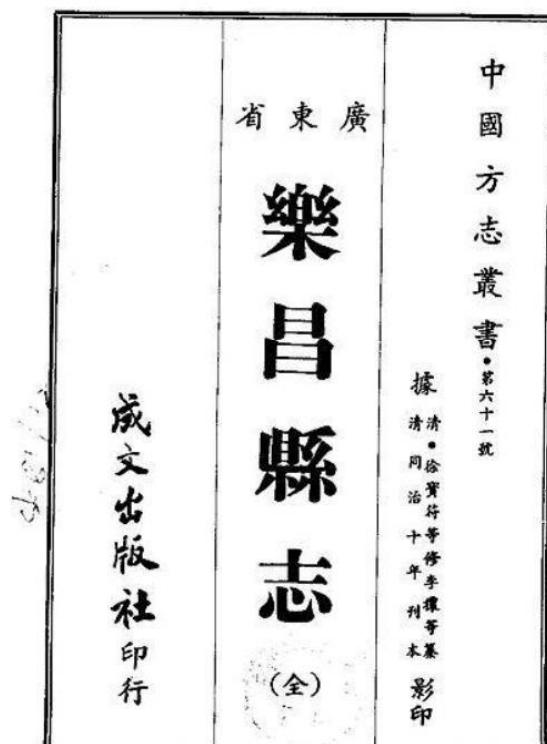 中國方志叢書•第六十一號
據清•徐寶符等修李穫等纂
清同治十年刊本影印
廣東省
樂昌縣志
(全)
成文出版社印行